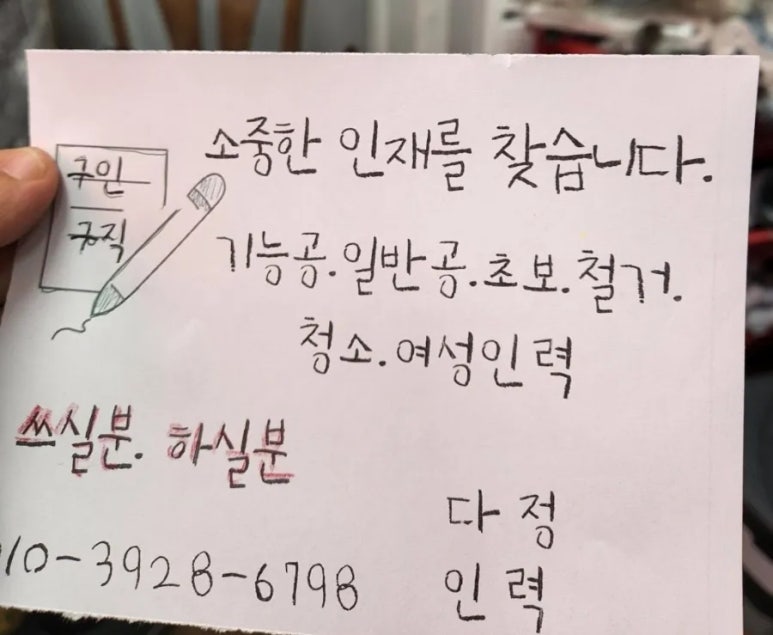 소중한 인재를 찾습니다.
구인
구직
기능공.일반공.초보.철거.
청소.여성인력
쓰실분. 하실분
다정
인력
010-3928-6798